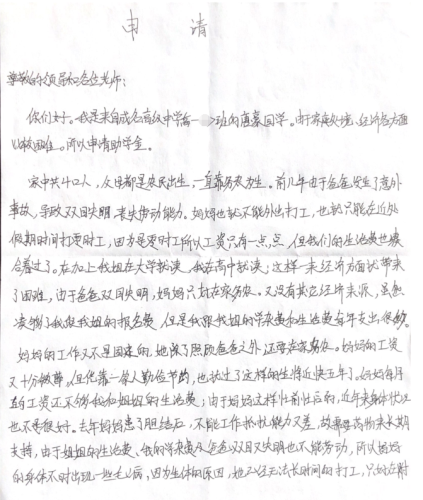 申 请
尊敬的领导和各位老师：
你们好。我是来自成名高级中学高一 班的 同学。由于家庭处境、经济各方面
比较困难。所以申请助学金。
家中共4口人，父母都是农民出生，一直靠务农为生。前几年由于爸爸发生了意外
事故，导致双目失明，丧失劳动能力。妈妈也就不能外出打工，也就只能在近处
假期时间打零时工，因为是零时工所以工资只有一点点 但我们的生活费也凑
合着过了。在加上我姐在大学就读，我在高中就读；这样一来经济方面就带来
了困难，由于爸爸双目失明，妈妈只就在家务农。又没有其它经济来源，虽然
凑够了我跟我姐的报名费，但是我跟我姐的学杂费和生活费每年支出很多。
妈妈的工作又不是固定的，她除了照顾爸爸之外 还要在家务农。妈妈的工资
又十分微薄。但凭靠一家人勤俭节约，也就过了这样的生活近快五年了。妈妈每月
的工资还不够我和姐姐的生活费；由于妈妈这样牛割性后的，近年来身体状况
也不是很好。去年妈妈患了胆结石，不能工作 抵抗能力又差，故需要药物来长期
支持，由于姐姐的生活费、我的学杂费 爸爸双目又失明也不能劳动，所以妈妈
的身体不时出现一些老毛病，因为身体的原因，她已经无法长时间的打工，只好在附